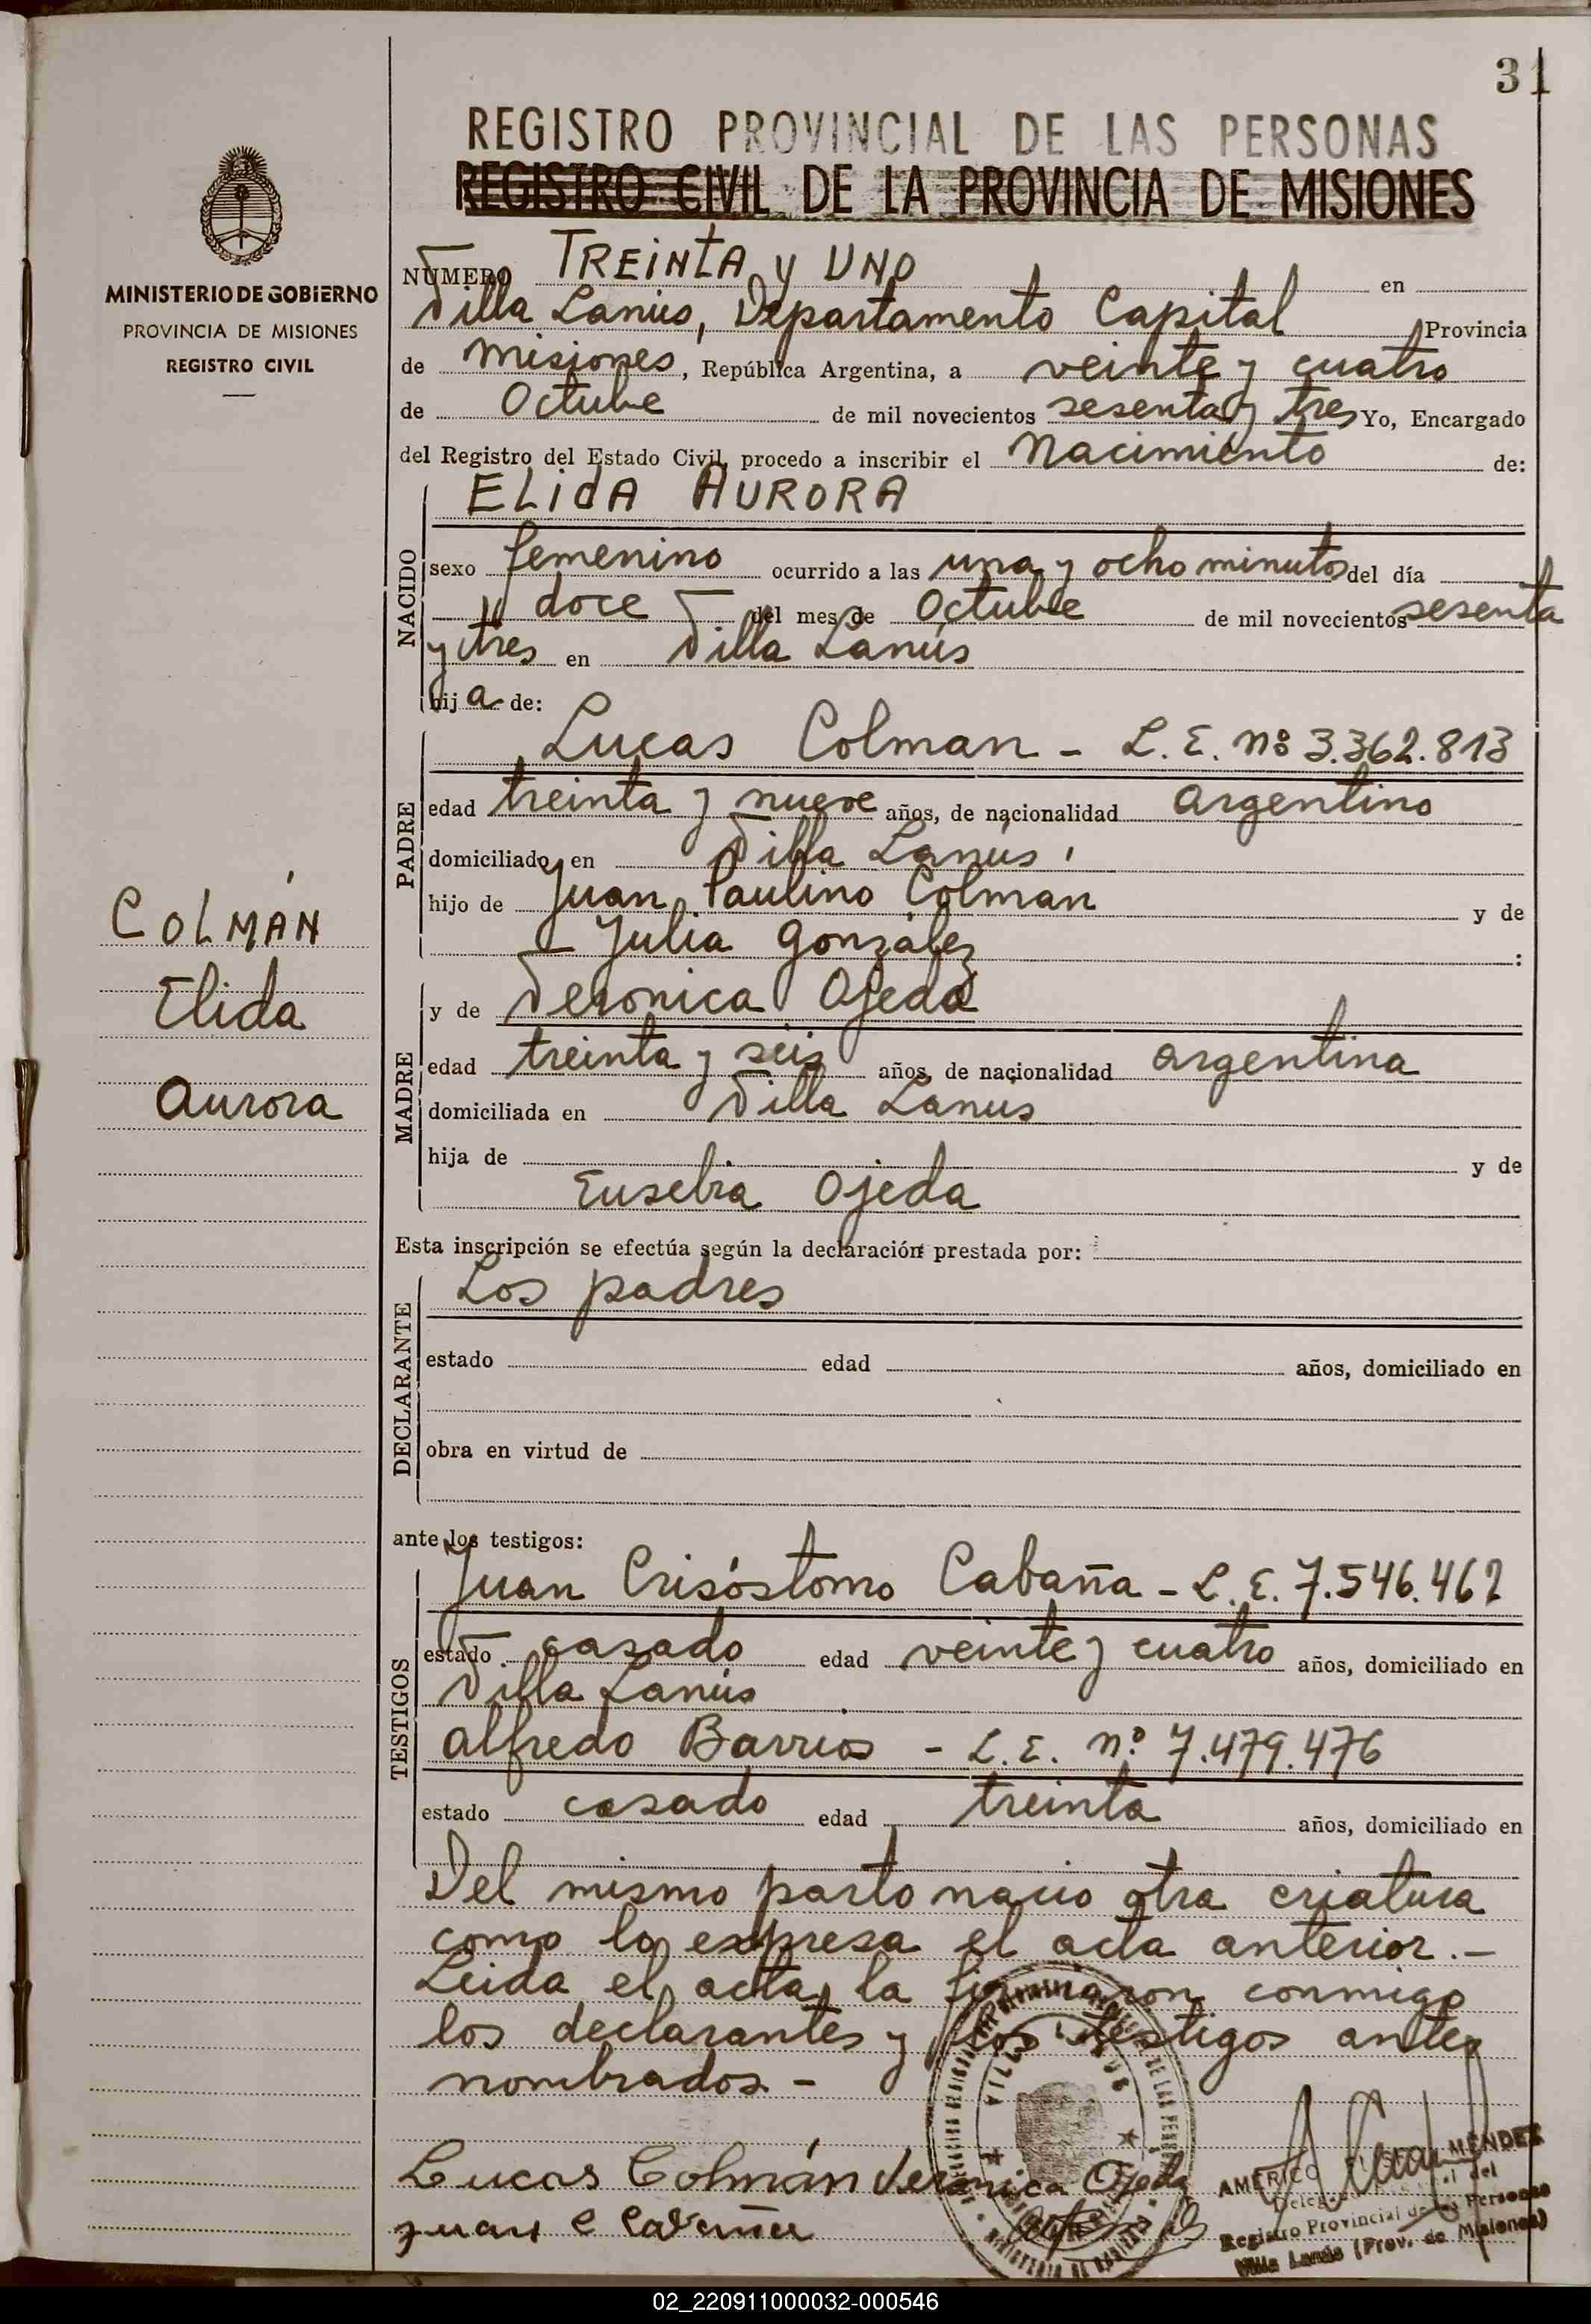 31
REGISTRO PROVINCIAL DE LAS PERSONAS
REGISTRO CIVIL DE LA PROVINCIA DE MISIONES
MINISTERIO DE GOBIERNO
PROVINCIA DE MISIONES
REGISTRO CIVIL
NUMERO TREINTA y UNO en
Villa Lanús, Departamento Capital Provincia
de Misiones, República Argentina, a veinte y cuatro
de Octubre de mil novecientos sesenta y tres Yo, Encargado
del Registro del Estado Civil, procedo a inscribir el Nacimiento de:
NACIDO
ELIDA AURORA
sexo femenino ocurrido a las una y ocho minutos del día
doce del mes de Octubre de mil novecientos sesenta
y tres en Villa Lanús
hija de:
PADRE
Lucas Colman - L.E. nº 3.362.813
edad treinta y nueve años, de nacionalidad argentino
domiciliado en Villa Lanús
hijo de Juan Paulino Colmán y de
Julia González :
MADRE
y de Veronica Ojeda
edad treinta y seis años, de nacionalidad argentina
domiciliada en Villa Lanus
hija de y de
Eusebia Ojeda
COLMÁN
Elida
Aurora
Esta inscripción se efectúa según la declaración prestada por:
DECLARANTE
Los padres
estado edad años, domiciliado en
obra en virtud de
ante los testigos:
TESTIGOS
Juan Crisóstomo Cabaña - L.E. 7.546.462
estado casado edad veinte y cuatro años, domiciliado en
Villa Lanús
Alfredo Barrios - L.E. nº 7.479.476
estado casado edad treinta años, domiciliado en
Del mismo parto nacio otra criatura
como lo expresa el acta anterior.-
Leida el acta, la firmaron conmigo
los declarantes y los testigos antes
nombrados.-
Lucas Colmán Veronica Ojeda
Juan C Cabaña
AMERICO MENDEZ
del
Registro Provincial de las Personas
Villa Lanús (Prov. de Misiones)
02_220911000032-000546